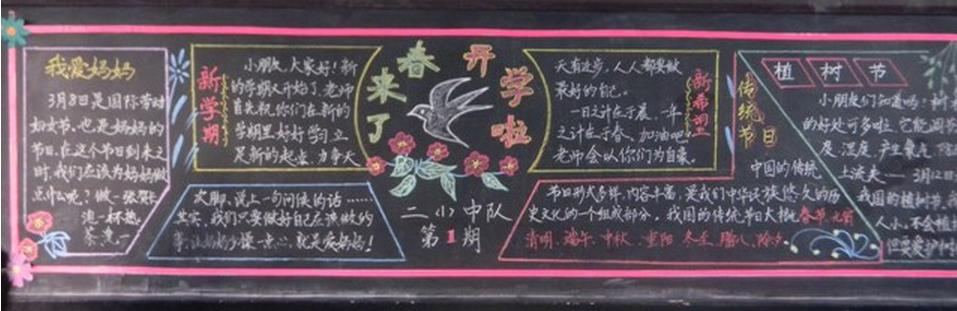 我爱妈妈
3月8日是国际劳动
妇女节,也是妈妈的
节日,在这个节日到来之
时,我们应该为妈妈做
点什么呢?做一张贺卡
浇一杯热
茶,洗一
次脚、说上一句问候的话……
其实,我们只要做好自己应该做的
事,让妈妈少操一点心,就是爱妈妈!
新学期
小朋友,大家好!新
的学期又开始了,老师
首先祝你们在新的
学期里好好学习,立
足新的起点,力争天
春来了
开学啦
二(1)中队
第1期
天有进步,人人都要做
最好的自己。
一日之计在于晨,一年
之计在于春,加油吧!
老师会以你们为自豪。
新希望
传统节日
中国的传统
节日形式多样,内容丰富,是我们中华民族悠久的历
史文化的一个组成部分。我国的传统节日大概春节、元宵
清明、端午、中秋、重阳、冬至、腊八、除夕。
植树节
小朋友们知道吗?树
的好处可多啦,它能调节
度、湿度,产生氧气,
上流失……3月12日
我国的植树节,我
人小,不会植
但要爱护树